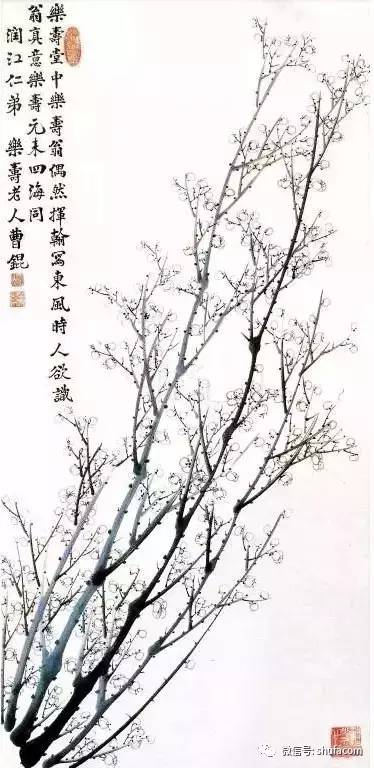 樂壽堂中樂壽翁偶然揮翰寫東風時人欲識
翁真意樂壽元来四海同
润江仁弟 樂壽老人曹錕
微信号: shufacom